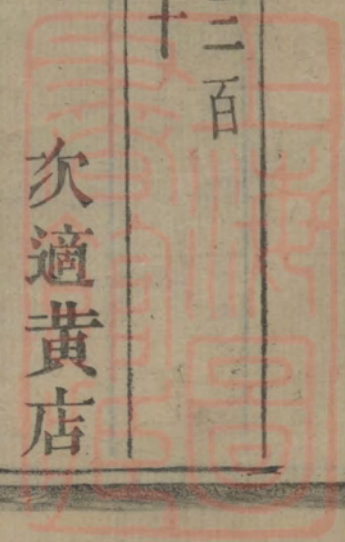 二百
十
次適黄店